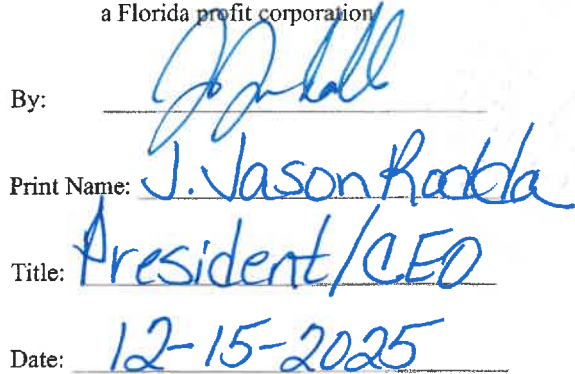 a Florida profit corporation
By:
Print Name: J. Jason Rodda
Title: President/CEO
Date: 12-15-2025